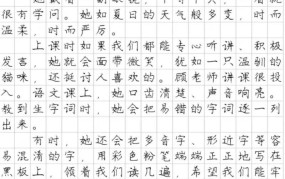 很有学问。她如夏日的天气般多变，时而
温柔，时而严厉。
上课时如果我们都能专心听讲、积极
发言，她就会面带微笑，犹如一只温驯的
猫咪，还挺讨人喜欢的。顾老师讲课很投
入。语文课上，她口齿清楚，声音响亮。
教到生字词时，她会把易错的字词逐一列
出来。
有时，她还会把多音字、形近字等容
易混淆的字，用彩色粉笔端端正正地写在
黑板上，领着我们读几遍，希望我们能牢